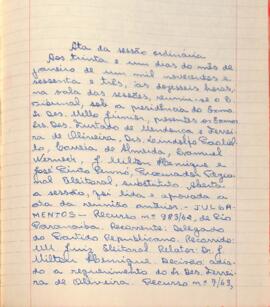 Ata da sessão ordinária
Aos trinta e um dias do mês de
janeiro de um mil novecentos e
sessenta e três, às dezesseis horas,
na sala das sessões, reuniu-se o E.
Tribunal, sob a presidência do Exmo.
Sr. Des. Mello Júnior, presentes os Exmos
Srs. Des. Furtado de Mendonça e Ferrei
ra de Oliveira, Drs.
Correia de Almeida,
Werneck, J. Milton Henrique e
José Pinto Procurador Regio
nal Eleitoral, substituto. Aberta
a sessão, foi lida e aprovada a
ata da reunião anterior. - JULGA-
MENTOS - Recurso nº 983/62, de Rio
Paranaíba. Recorrente: Delegado
do Partido Republicano. Recorrido:
MM. Juiz Eleitoral. Relator: Dr. J.
Milton Henrique. Decisão: adia-
do a requerimento do Sr. Des. Ferrei
ra de Oliveira. Recurso nº 7/63,